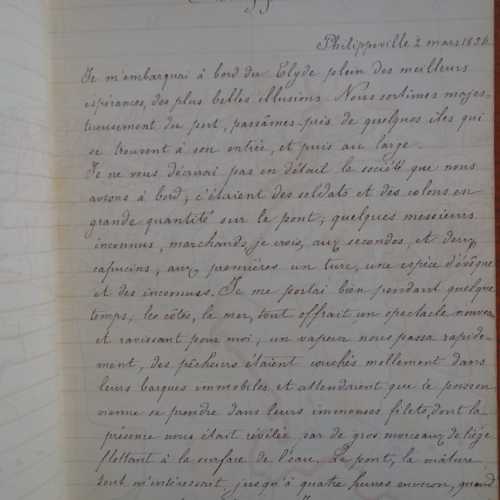 Philippeville 2 mars 1856
Je m'embarquai à bord du Clyde plein des meilleurs
espérances, des plus belles illusions. Nous sortîmes majes-
tueusement du port, passâmes près de quelques îles qui
se trouvent à son entrée, et puis au large.....
Je ne vous décrirai pas en détail la société que nous
avions à bord, c'étaient des soldats et des colons en
grande quantité sur le pont, quelques messieurs
inconnus, marchands, je crois, aux secondes, et deux
capucins, aux premières un turc, une espèce d'évêque
et des inconnus. Je me portai bien pendant quelque
temps; les côtes, la mer, tout offrait un spectacle nouveau
et ravissant pour moi; un vapeur nous passa rapide-
ment, des pêcheurs étaient couchés mollement dans
leurs barques immobiles et attendaient que le poisson
vienne se prendre dans leurs immenses filets, dont la
présence nous était révélée par de gros morceaux de liège
flottant à la surface de l'eau. Le pont, la mâture
tout m'intéressait jusqu'à quatre heures environ, quand